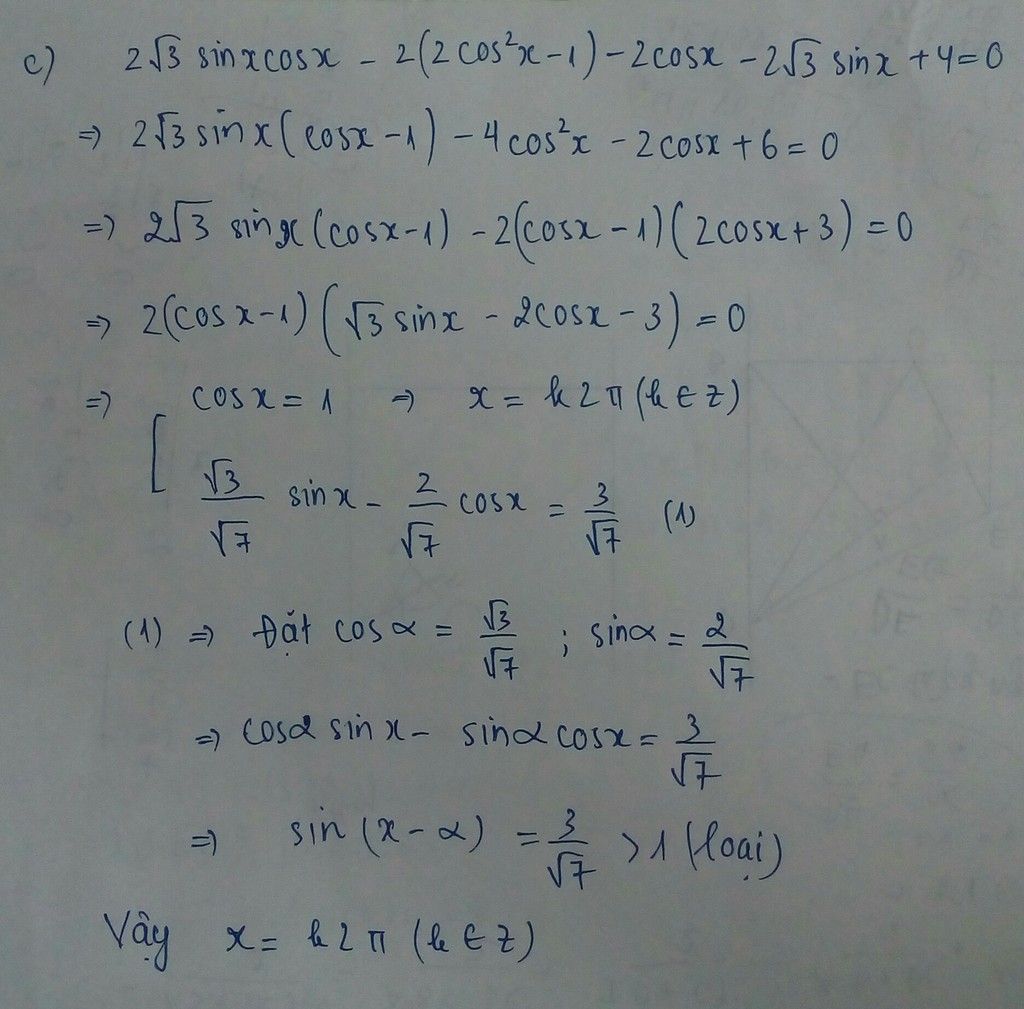 c) 2√3 sinxcosx - 2(2cos²x - 1) - 2cosx - 2√3 sinx + 4 = 0
=> 2√3 sinx(cosx - 1) - 4cos²x - 2cosx + 6 = 0
=> 2√3 sinx(cosx - 1) - 2(cosx - 1)(2cosx + 3) = 0
=> 2(cosx - 1)(√3 sinx - 2cosx - 3) = 0
=> [ cosx = 1 => x = k2π (k ∈ Z)
√3/√7 sinx - 2/√7 cosx = 3/√7 (1)
(1) => Đặt cosα = √3/√7 ; sinα = 2/√7
=> cosα sinx - sinα cosx = 3/√7
=> sin(x - α) = 3/√7 > 1 (loại)
Vậy x = k2π (k ∈ Z)